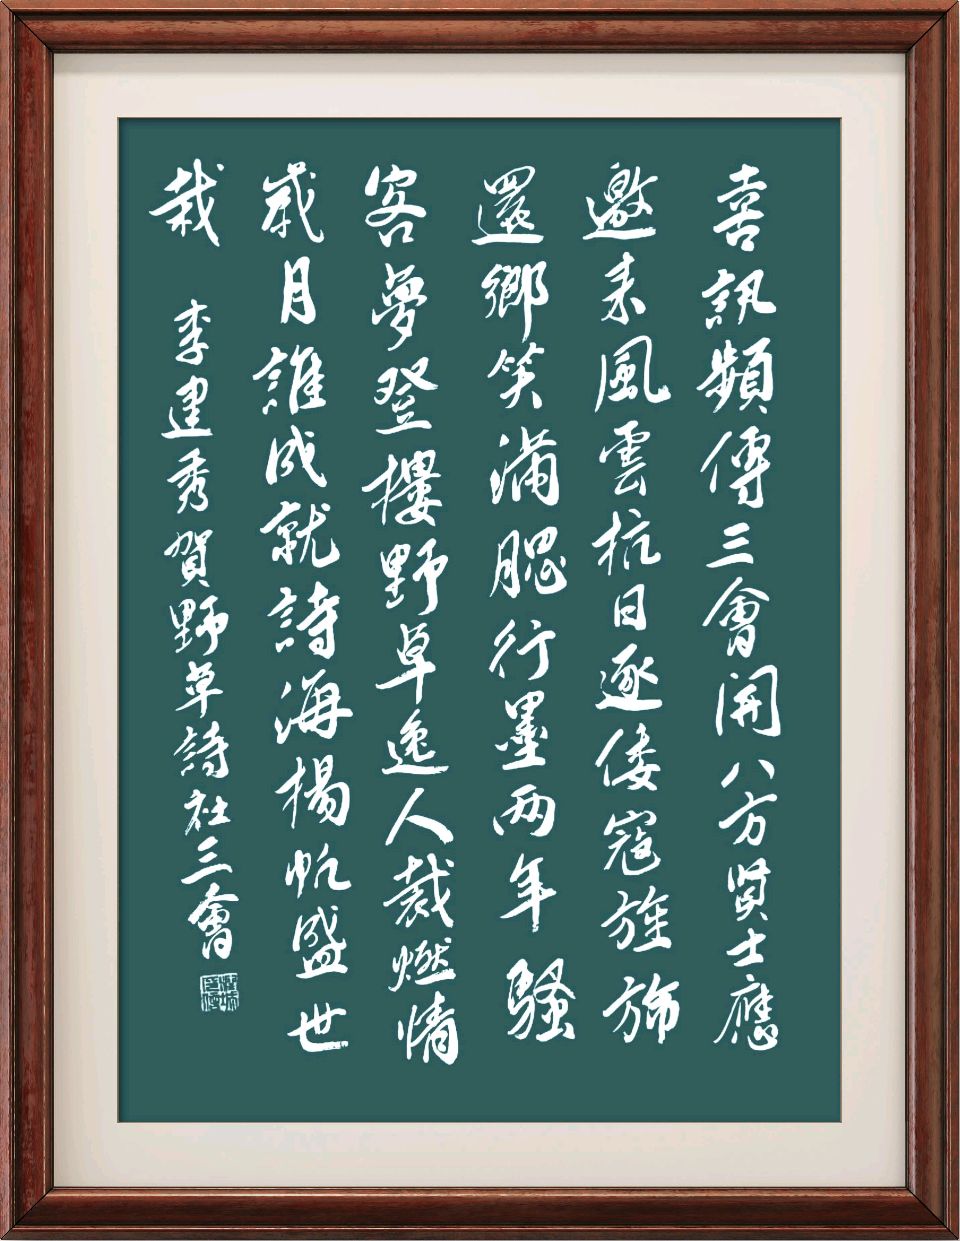 喜訊頻傳三會開八方賢士應
邀来風雲抗日逐倭寇旌旆
還鄉笑滿腮行墨两年騷
客夢登樓野草逸人裁燃情
歲月誰成就詩海揚帆盛世
栽
李建秀賀野草詩社三會